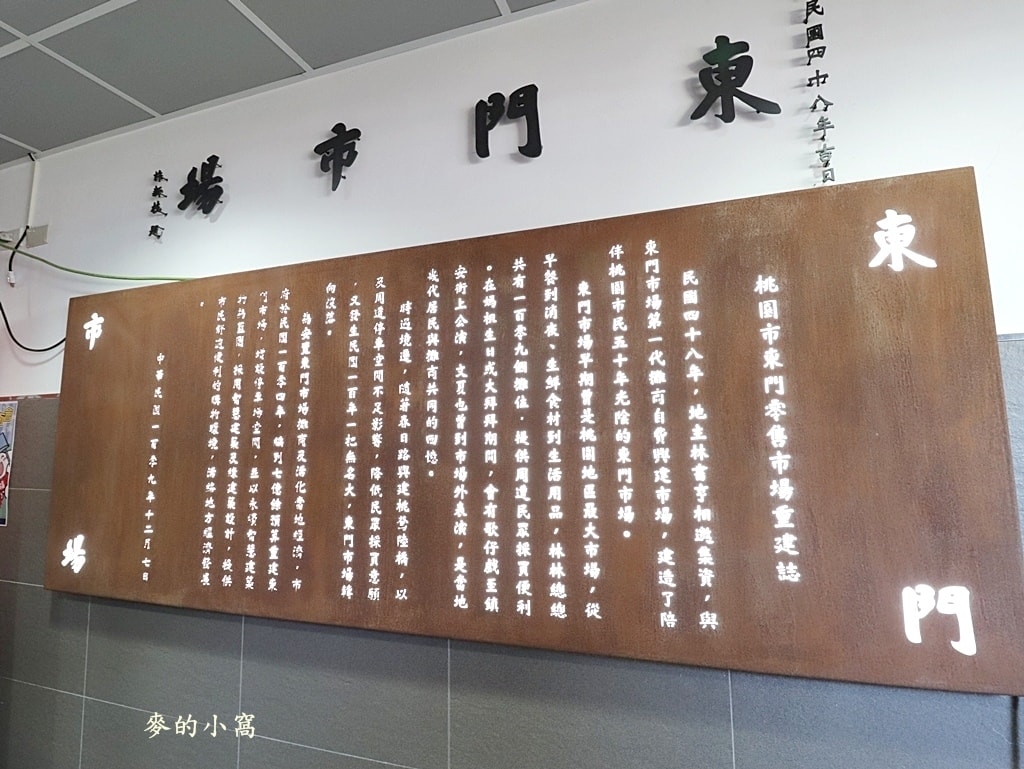 民國四十八年吉日
東門市場
東門
市場
桃園市東門零售市場重建誌
民國四十八年,地主林書亨相邀集資,與
東門市場第一代攤商自費興建市場,建造了陪
伴桃園市民五十年光陰的東門市場。
東門市場早期曾是桃園地區最大市場,從
早餐到消夜、生鮮食材到生活用品,林林總總
共有一百零九個攤位,提供周邊民眾採買便利
。在媽祖生日或大拜拜期間,會有歌仔戲至鎮
安街上公演,文夏也曾到市場外表演,是當地
世代居民與攤商共同的回憶。
時過境遷,隨著春日路興建桃鶯陸橋,以
及周邊停車空間不足影響,降低民眾採買意願
,又發生民國一百年一把無名火,東門市場轉
向沒落。
為安置東門市場攤商及活化當地經濟,市
府於民國一百零四年,編列七億餘預算重建東
門市場,增設停車場空間,並以永續智慧建築
打造藍圖,採用智慧建築及綠建築設計,提供
市民舒適便利的購物環境,活絡地方經濟發展
。
中華民國一百零九年十二月七日
麥的小窩